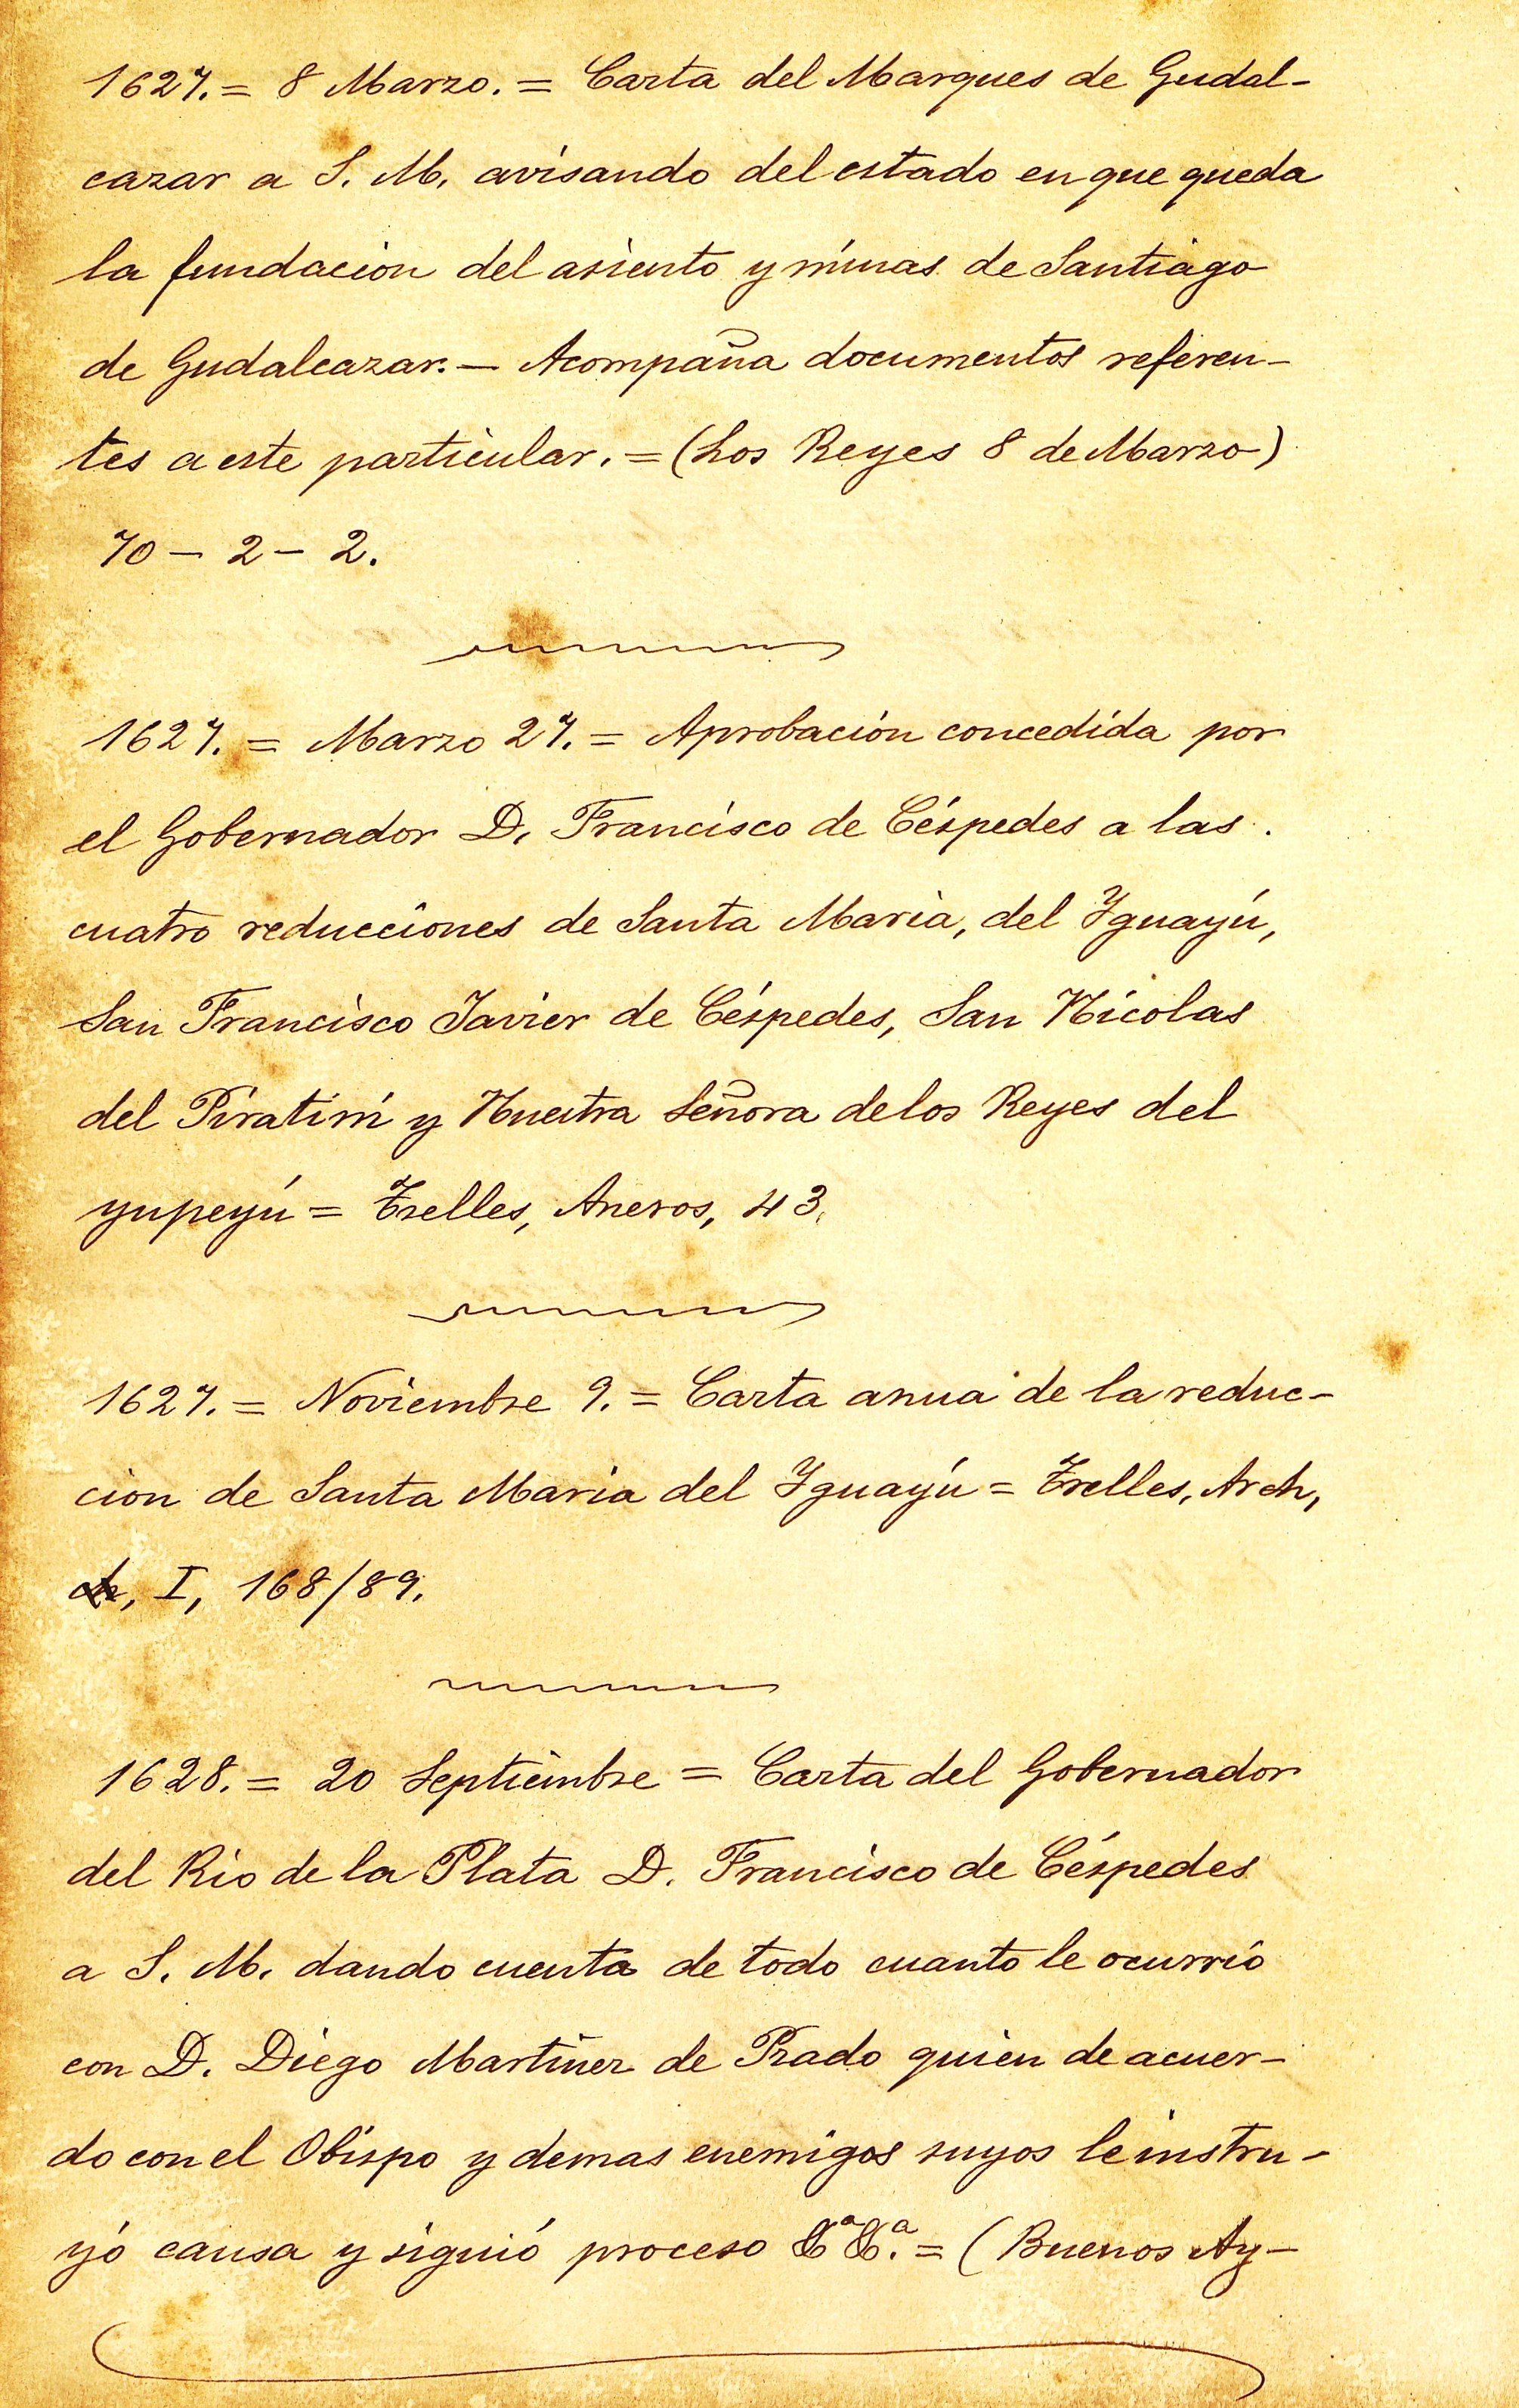 1627. = 8 Marzo. = Carta del Marques de Gudal-
cazar a S. M. avisando del estado en que queda
la fundacion del asiento y minas de Santiago
de Gudalcazar. — Acompaña documentos referen-
tes a este particular. = (Los Reyes 8 de Marzo)
70 — 2 — 2.
1627. = Marzo 27. = Aprobación concedida por
el Gobernador D. Francisco de Céspedes a las
cuatro reducciones de Santa Maria, del Yguayú,
San Francisco Javier de Céspedes, San Nicolas
del Piratiní y Nuestra Señora de los Reyes del
yupeyú = Trelles, Anexos, 43.
1627. = Noviembre 9. = Carta anua de la reduc-
cion de Santa Maria del Yguayú = Trelles, Arch,
I, 168/89.
1628. = 20 Septiembre = Carta del Gobernador
del Rio de la Plata D. Francisco de Céspedes
a S. M. dando cuenta de todo cuanto le ocurrió
con D. Diego Martinez de Prado quien de acuer-
do con el Obispo y demas enemigos suyos le instru-
yó causa y siguió proceso &ª &ª. = (Buenos Ay-